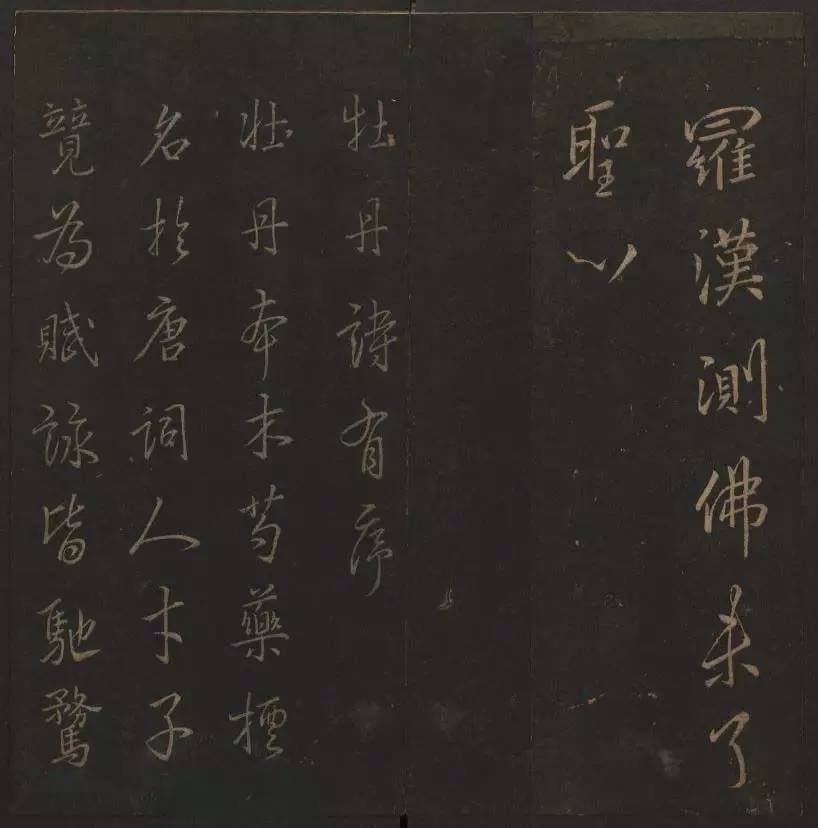 羅漢測佛未了
聖心
牡丹詩有序
牡丹本木芍藥擅
名於唐詞人才子
競為賦詠皆馳騖